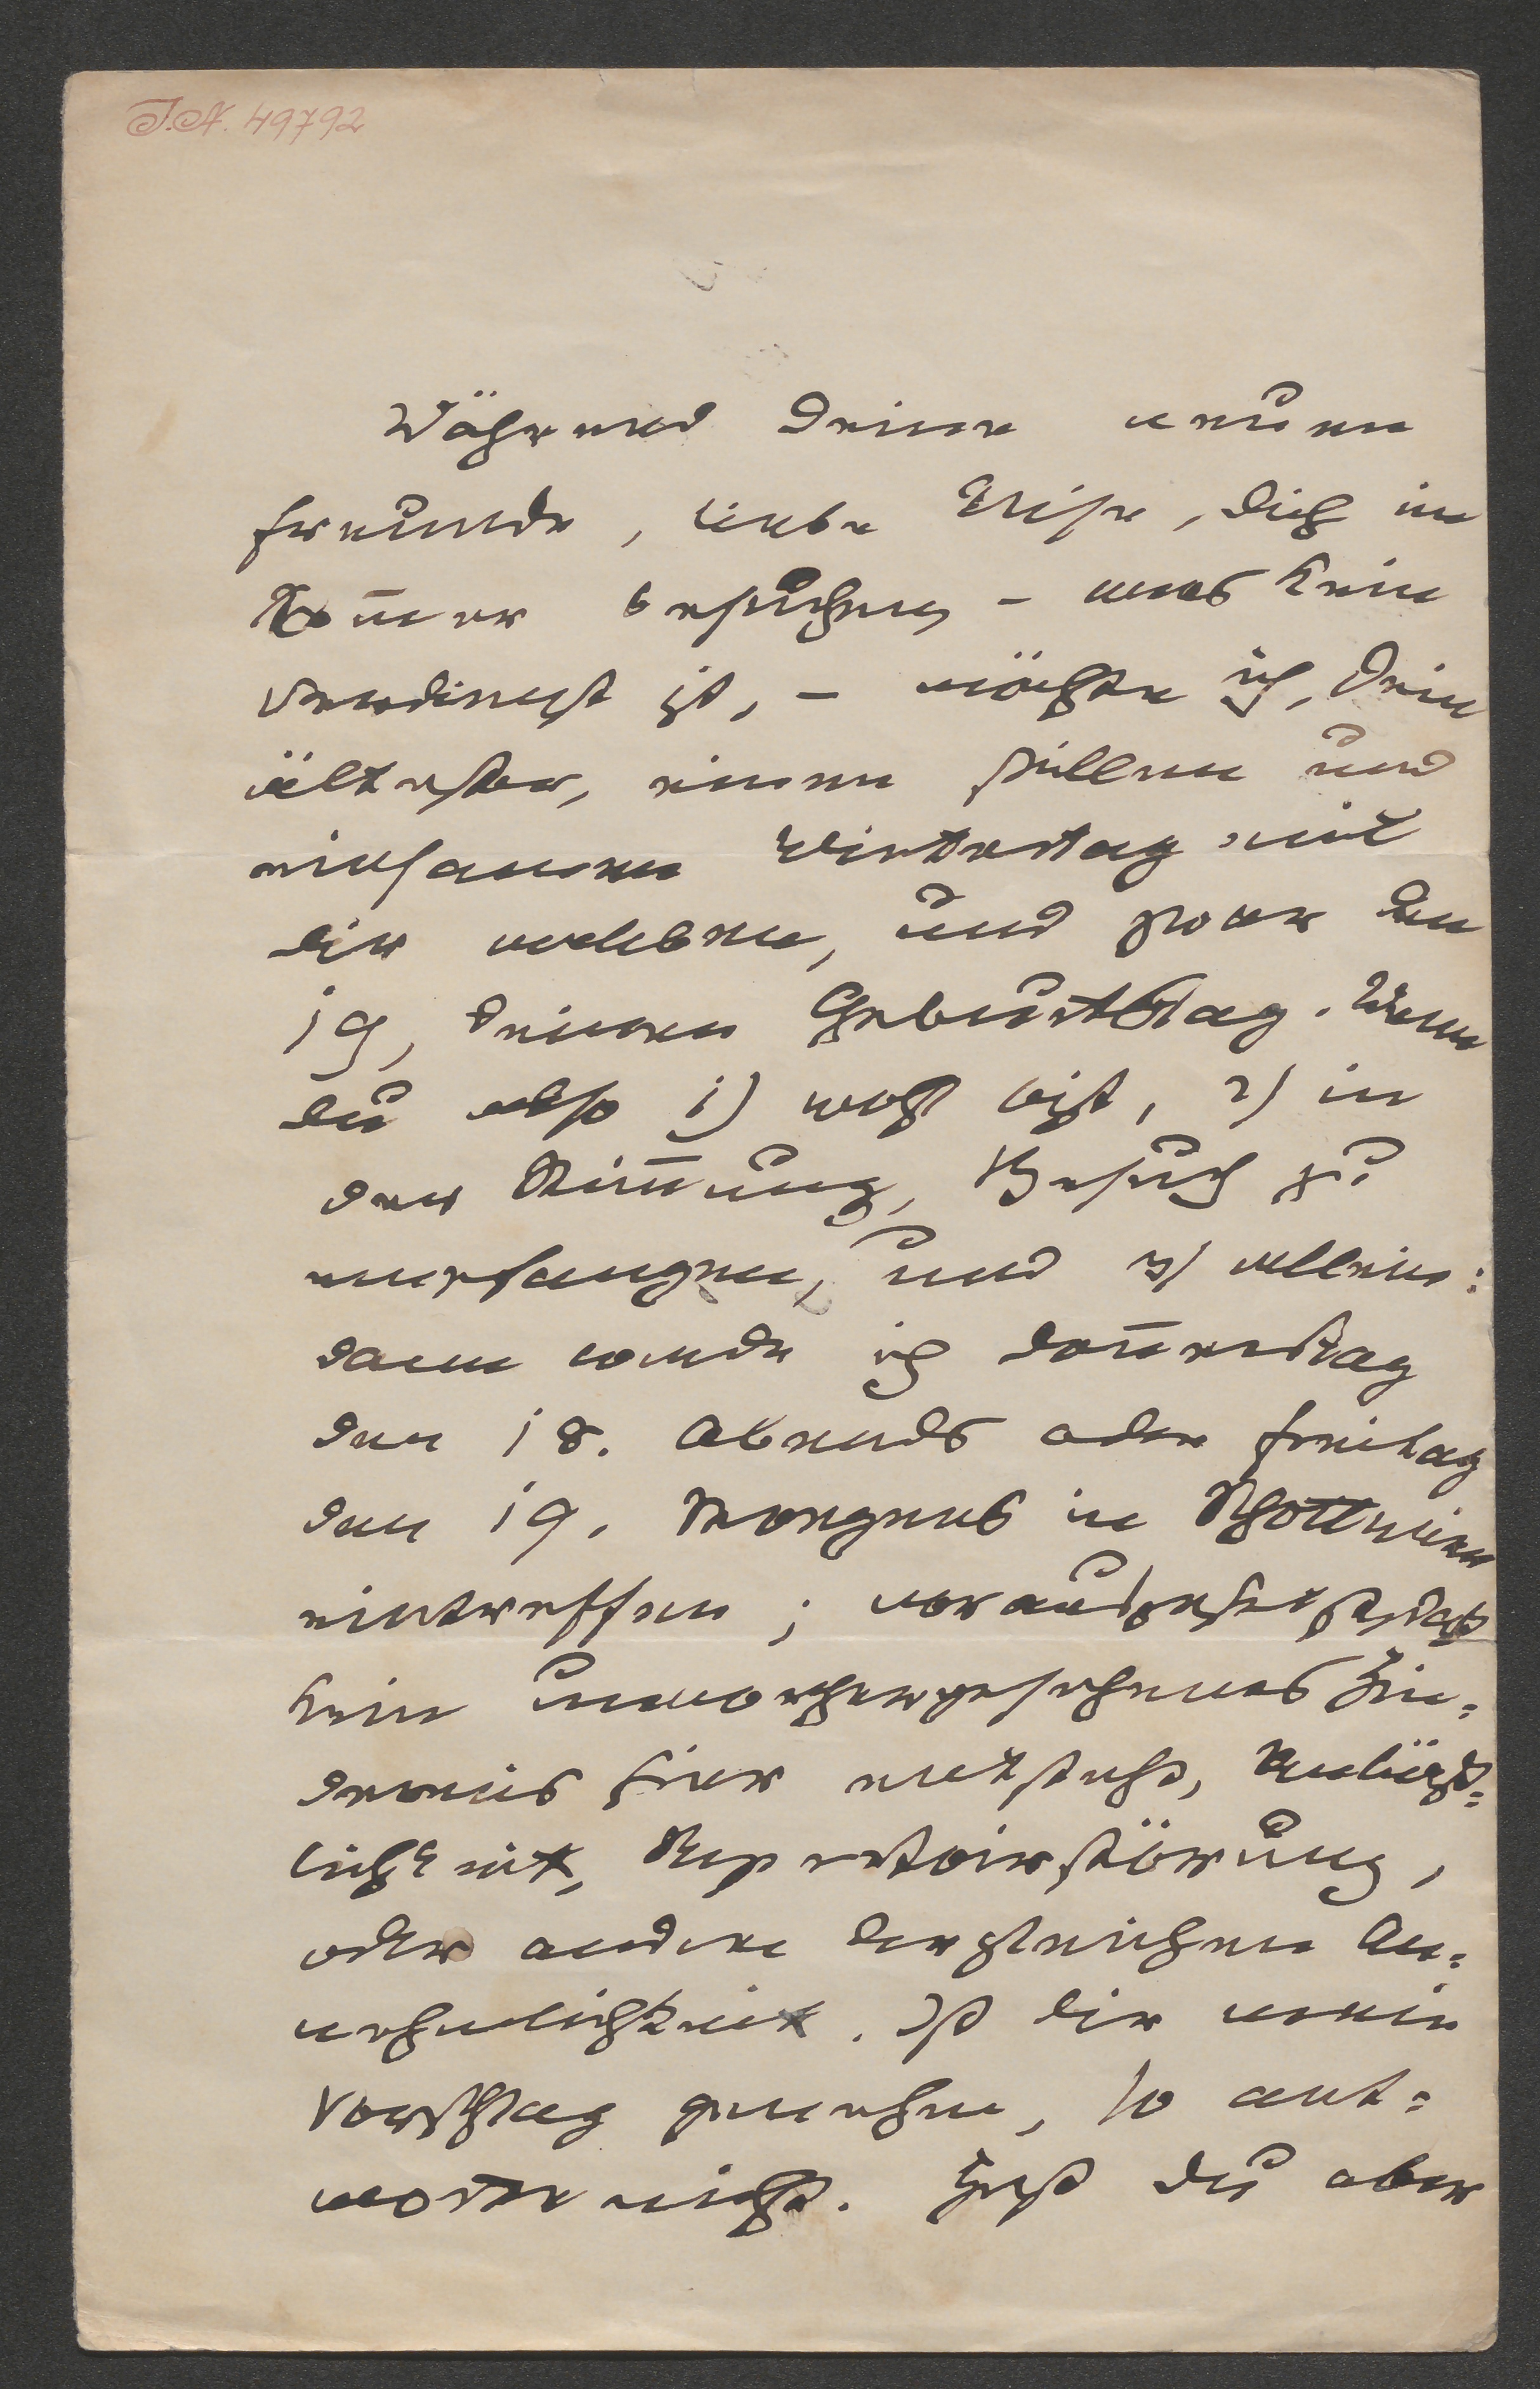 I.N. 49792
Während Deine neuen
Freunde, liebe Elise, Dich im
Som̅er besuchen – was kein
Verdienst ist, – möchte ich, Dein
ältester, einen stillen und
einsamen Wintertag mit
Dir verleben, und zwar den
19, Deinen Geburtstag. Wenn
Du also 1) wohl bist, 2) in
der Stim̅ung, Besuch zu
empfangen, und 3) allein:
dann werde ich Don̅erstag
den 18. Abends oder Freitag
den 19. Morgens in Schottwien
eintreffen; vorausgesetzt, daß
kein unvorhergesehenes Hin=
derniß hier entsteht, Unpäß=
lichkeit, Repertoirstörung,
oder andere dergleichen An=
nehmlichkeit. Ist Dir mein
Vorschlag genehm, so ant=
worte nicht. Hast Du aber